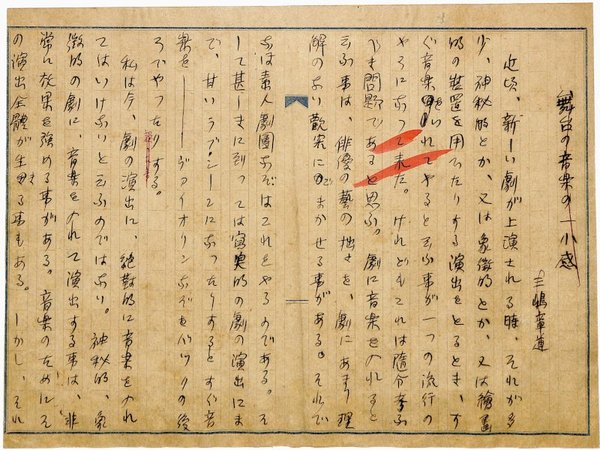 舞台の音楽の一小感
三嶋章道
近頃、新しい劇が上演される時、それが多
少、神秘的とか、又は象徴的とか、又は繪画
的の装置を用ゐたりする演出をとるとき、す
ぐ音楽をいれてやると云ふ事が一つの流行の
やうになつて来た。けれどもこれは随分考ふ
べき問題であると思ふ。劇に音楽を入れると
云ふ事は、俳優の藝の拙さを、劇にあまり理
解のない観客にごまかせる事がある。それで
なほ素人劇團などはこれをやるのである。そ
して甚しきに到つては写実的の劇の演出にま
で、甘いラブシーンになつたりするとすぐ音
楽を――ヴァイオリンなどをバックの後
ろでやつたりする。
私は今、劇の演出に、絶対的に音楽を入れ
てはいけないと云ふのではない。神秘的、象
徴的の劇に、音楽を入れて演出する事は、非
常に効果を強める事がある。音楽のためにそ
の演出全體が生きる事もある。しかし、それ